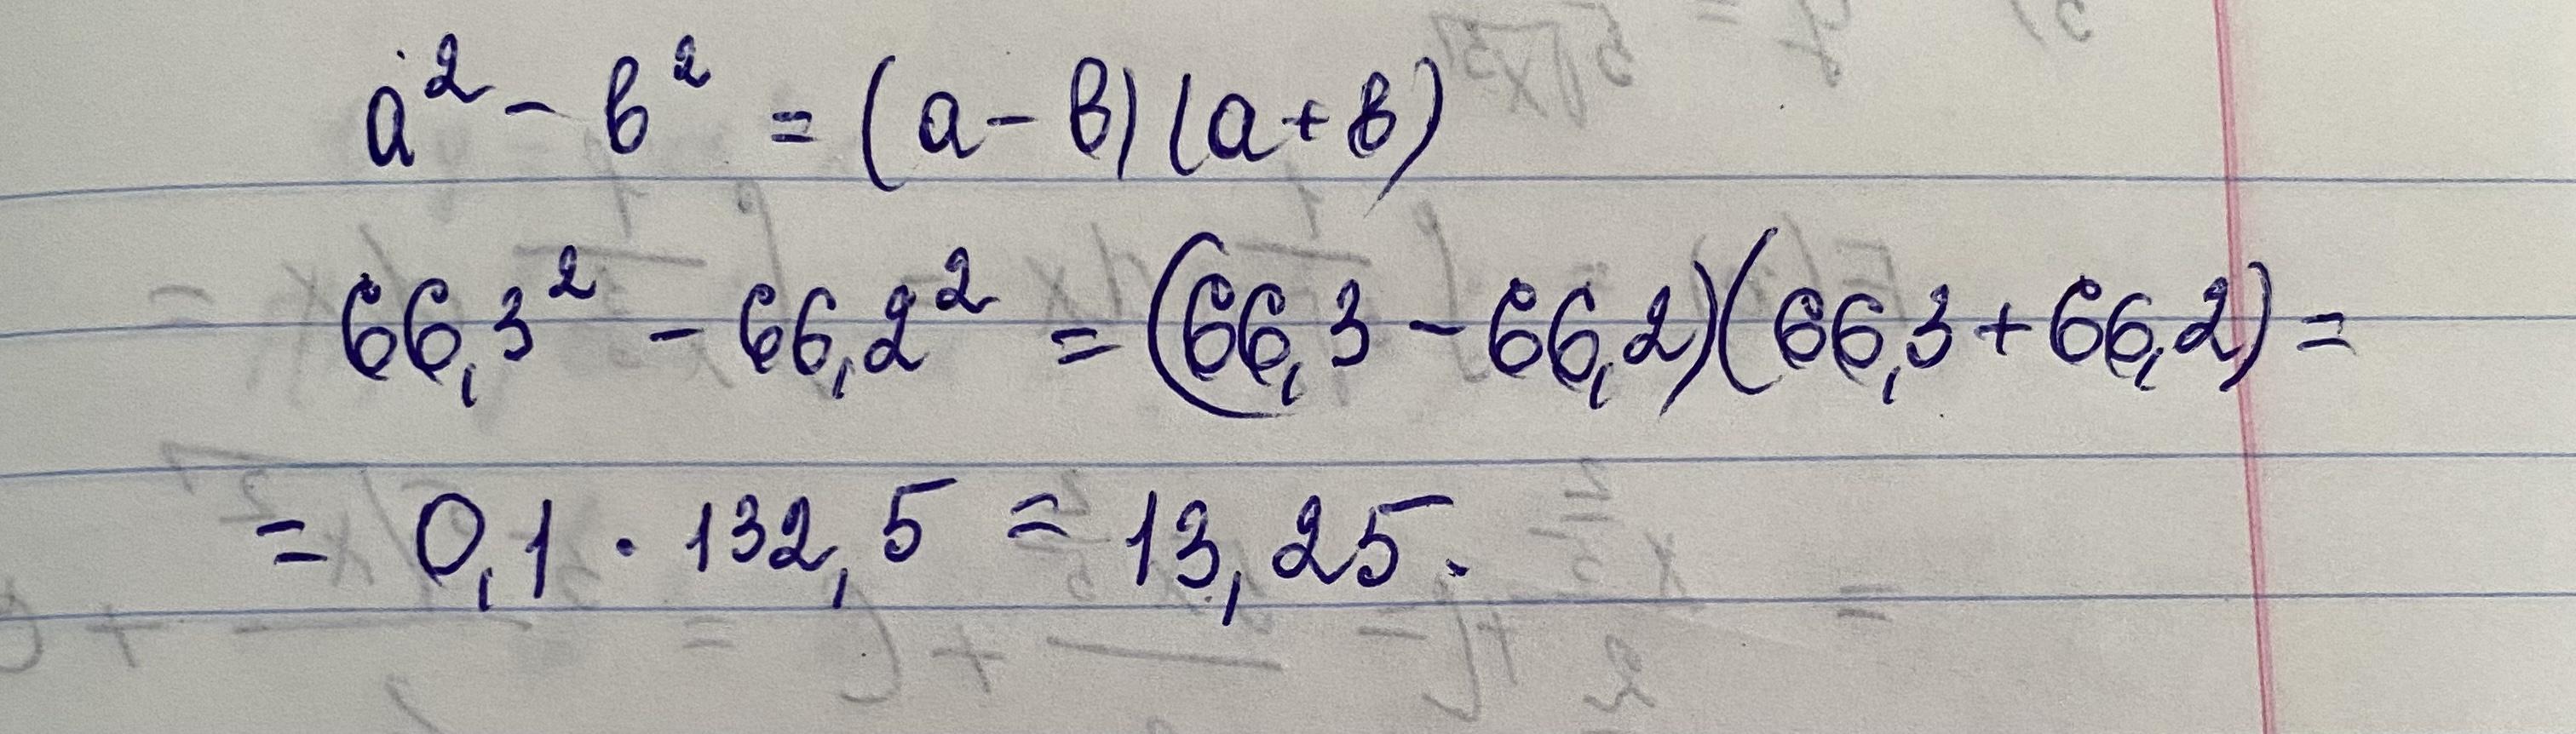 a² - b² = (a - b)(a + b)
66,3² - 66,2² = (66,3 - 66,2)(66,3 + 66,2) =
= 0,1 · 132,5 = 13,25.